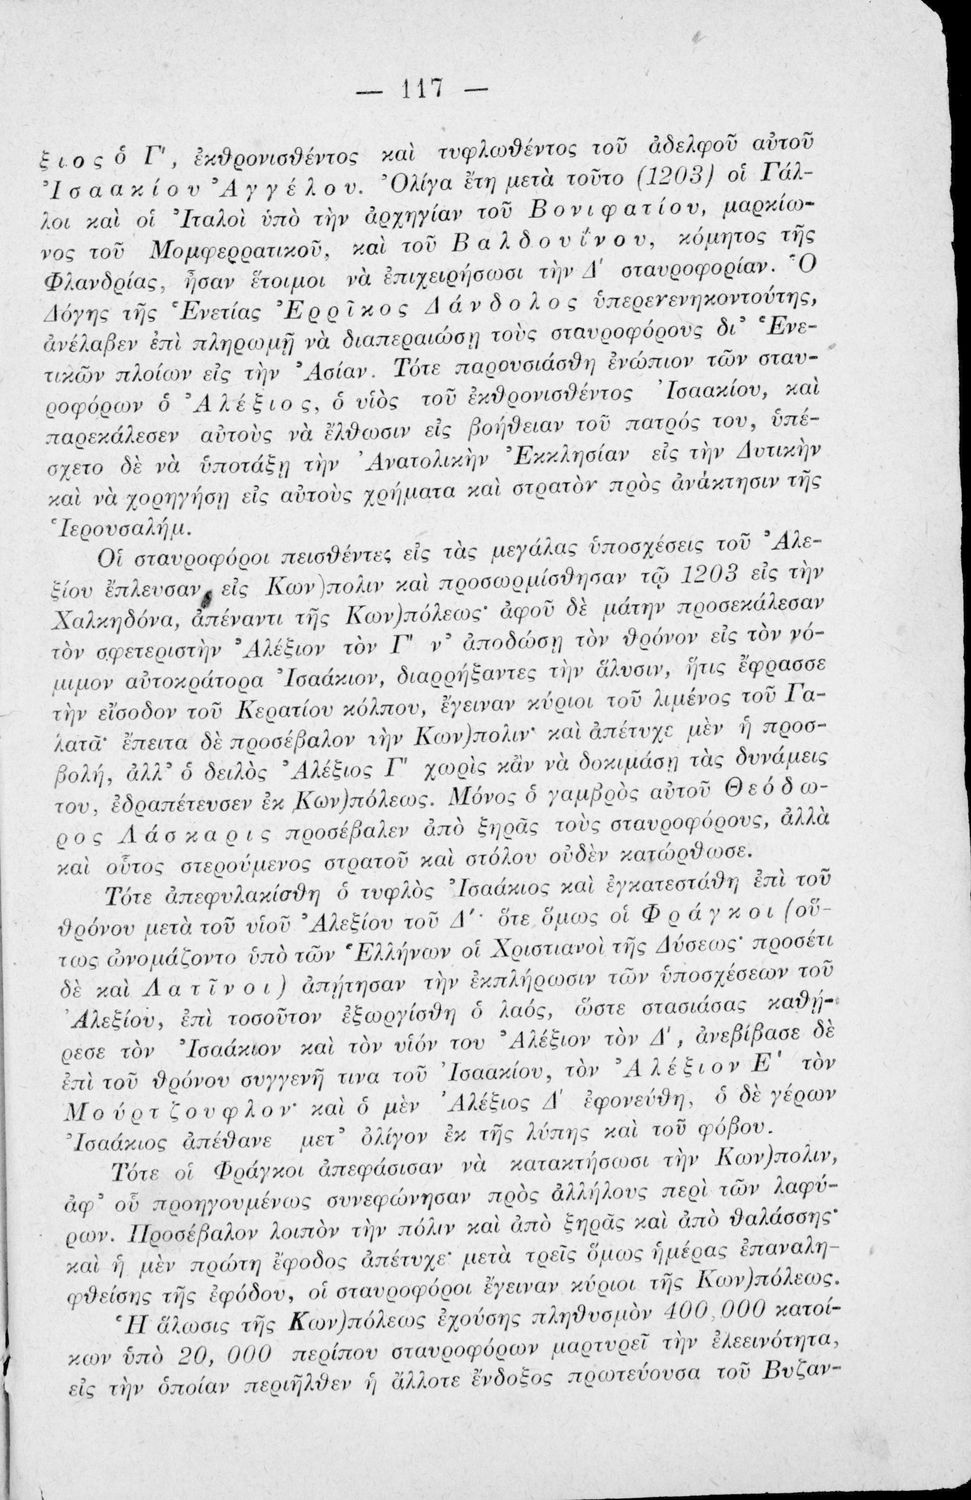 — 117 —
ξιος ὁ Γ', ἐκθρονισθέντος καὶ τυφλωθέντος τοῦ ἀδελφοῦ αὐτοῦ
Ἰσαακίου Ἀγγέλου. Ὀλίγα ἔτη μετὰ τοῦτο (1203) οἱ Γάλ-
λοι καὶ οἱ Ἰταλοὶ ὑπὸ τὴν ἀρχηγίαν τοῦ Βονιφατίου, μαρκίω-
νος τοῦ Μομφερρατικοῦ, καὶ τοῦ Βαλδουΐνου, κόμητος τῆς
Φλανδρίας, ἦσαν ἕτοιμοι νὰ ἐπιχειρήσωσι τὴν Δ' σταυροφορίαν. Ὁ
Δόγης τῆς Ἑνετίας Ἐρρῖκος Δάνδολος ὑπερενενηκοντούτης,
ἀνέλαβεν ἐπὶ πληρωμῇ νὰ διαπεραιώσῃ τοὺς σταυροφόρους δι' Ἑνε-
τικῶν πλοίων εἰς τὴν Ἀσίαν. Τότε παρουσιάσθη ἐνώπιον τῶν σταυ-
ροφόρων ὁ Ἀλέξιος, ὁ υἱὸς τοῦ ἐκθρονισθέντος Ἰσαακίου, καὶ
παρεκάλεσεν αὐτοὺς νὰ ἔλθωσιν εἰς βοήθειαν τοῦ πατρός του, ὑπέ-
σχετο δὲ νὰ ὑποτάξῃ τὴν Ἀνατολικὴν Ἐκκλησίαν εἰς τὴν Δυτικὴν
καὶ νὰ χορηγήσῃ εἰς αὐτοὺς χρήματα καὶ στρατὸν πρὸς ἀνάκτησιν τῆς
Ἱερουσαλήμ.
Οἱ σταυροφόροι πεισθέντες εἰς τὰς μεγάλας ὑποσχέσεις τοῦ Ἀλε-
ξίου ἔπλευσαν εἰς Κων)πολιν καὶ προσωρμίσθησαν τῷ 1203 εἰς τὴν
Χαλκηδόνα, ἀπέναντι τῆς Κων)πόλεως· ἀφοῦ δὲ μάτην προσεκάλεσαν
τὸν σφετεριστὴν Ἀλέξιον τὸν Γ' ν' ἀποδώσῃ τὸν θρόνον εἰς τὸν νό-
μιμον αὐτοκράτορα Ἰσαάκιον, διαρρήξαντες τὴν ἅλυσιν, ἥτις ἔφρασσε
τὴν εἴσοδον τοῦ Κερατίου κόλπου, ἔγειναν κύριοι τοῦ λιμένος τοῦ Γα-
λατᾶ· ἔπειτα δὲ προσέβαλον τὴν Κων)πολιν· καὶ ἀπέτυχε μὲν ἡ προσ-
βολή, ἀλλ' ὁ δειλὸς Ἀλέξιος Γ' χωρὶς κἂν νὰ δοκιμάσῃ τὰς δυνάμεις
του, ἐδραπέτευσεν ἐκ Κων)πόλεως. Μόνος ὁ γαμβρὸς αὐτοῦ Θεόδω-
ρος Λάσκαρις προσέβαλεν ἀπὸ ξηρᾶς τοὺς σταυροφόρους, ἀλλὰ
καὶ οὗτος στερούμενος στρατοῦ καὶ στόλου οὐδὲν κατώρθωσε.
Τότε ἀπεφυλακίσθη ὁ τυφλὸς Ἰσαάκιος καὶ ἐγκατεστάθη ἐπὶ τοῦ
θρόνου μετὰ τοῦ υἱοῦ Ἀλεξίου τοῦ Δ'· ὅτε ὅμως οἱ Φράγκοι (οὕ-
τως ὠνομάζοντο ὑπὸ τῶν Ἑλλήνων οἱ Χριστιανοὶ τῆς Δύσεως· προσέτι
δὲ καὶ Λατῖνοι) ἀπῄτησαν τὴν ἐκπλήρωσιν τῶν ὑποσχέσεων τοῦ
Ἀλεξίου, ἐπὶ τοσοῦτον ἐξωργίσθη ὁ λαός, ὥστε στασιάσας καθῄ-
ρεσε τὸν Ἰσαάκιον καὶ τὸν υἱόν του Ἀλέξιον τὸν Δ', ἀνεβίβασε δὲ
ἐπὶ τοῦ θρόνου συγγενῆ τινα τοῦ Ἰσαακίου, τὸν Ἀλέξιον Ε' τὸν
Μούρτζουφλον· καὶ ὁ μὲν Ἀλέξιος Δ' ἐφονεύθη, ὁ δὲ γέρων
Ἰσαάκιος ἀπέθανε μετ' ὀλίγον ἐκ τῆς λύπης καὶ τοῦ φόβου.
Τότε οἱ Φράγκοι ἀπεφάσισαν νὰ κατακτήσωσι τὴν Κων)πολιν,
ἀφ' οὗ προηγουμένως συνεφώνησαν πρὸς ἀλλήλους περὶ τῶν λαφύ-
ρων. Προσέβαλον λοιπὸν τὴν πόλιν καὶ ἀπὸ ξηρᾶς καὶ ἀπὸ θαλάσσης·
καὶ ἡ μὲν πρώτη ἔφοδος ἀπέτυχε· μετὰ τρεῖς ὅμως ἡμέρας ἐπαναλη-
φθείσης τῆς ἐφόδου, οἱ σταυροφόροι ἔγειναν κύριοι τῆς Κων)πόλεως.
Ἡ ἅλωσις τῆς Κων)πόλεως ἐχούσης πληθυσμὸν 400,000 κατοί-
κων ὑπὸ 20, 000 περίπου σταυροφόρων μαρτυρεῖ τὴν ἐλεεινότητα,
εἰς τὴν ὁποίαν περιῆλθεν ἡ ἄλλοτε ἔνδοξος πρωτεύουσα τοῦ Βυζαν-